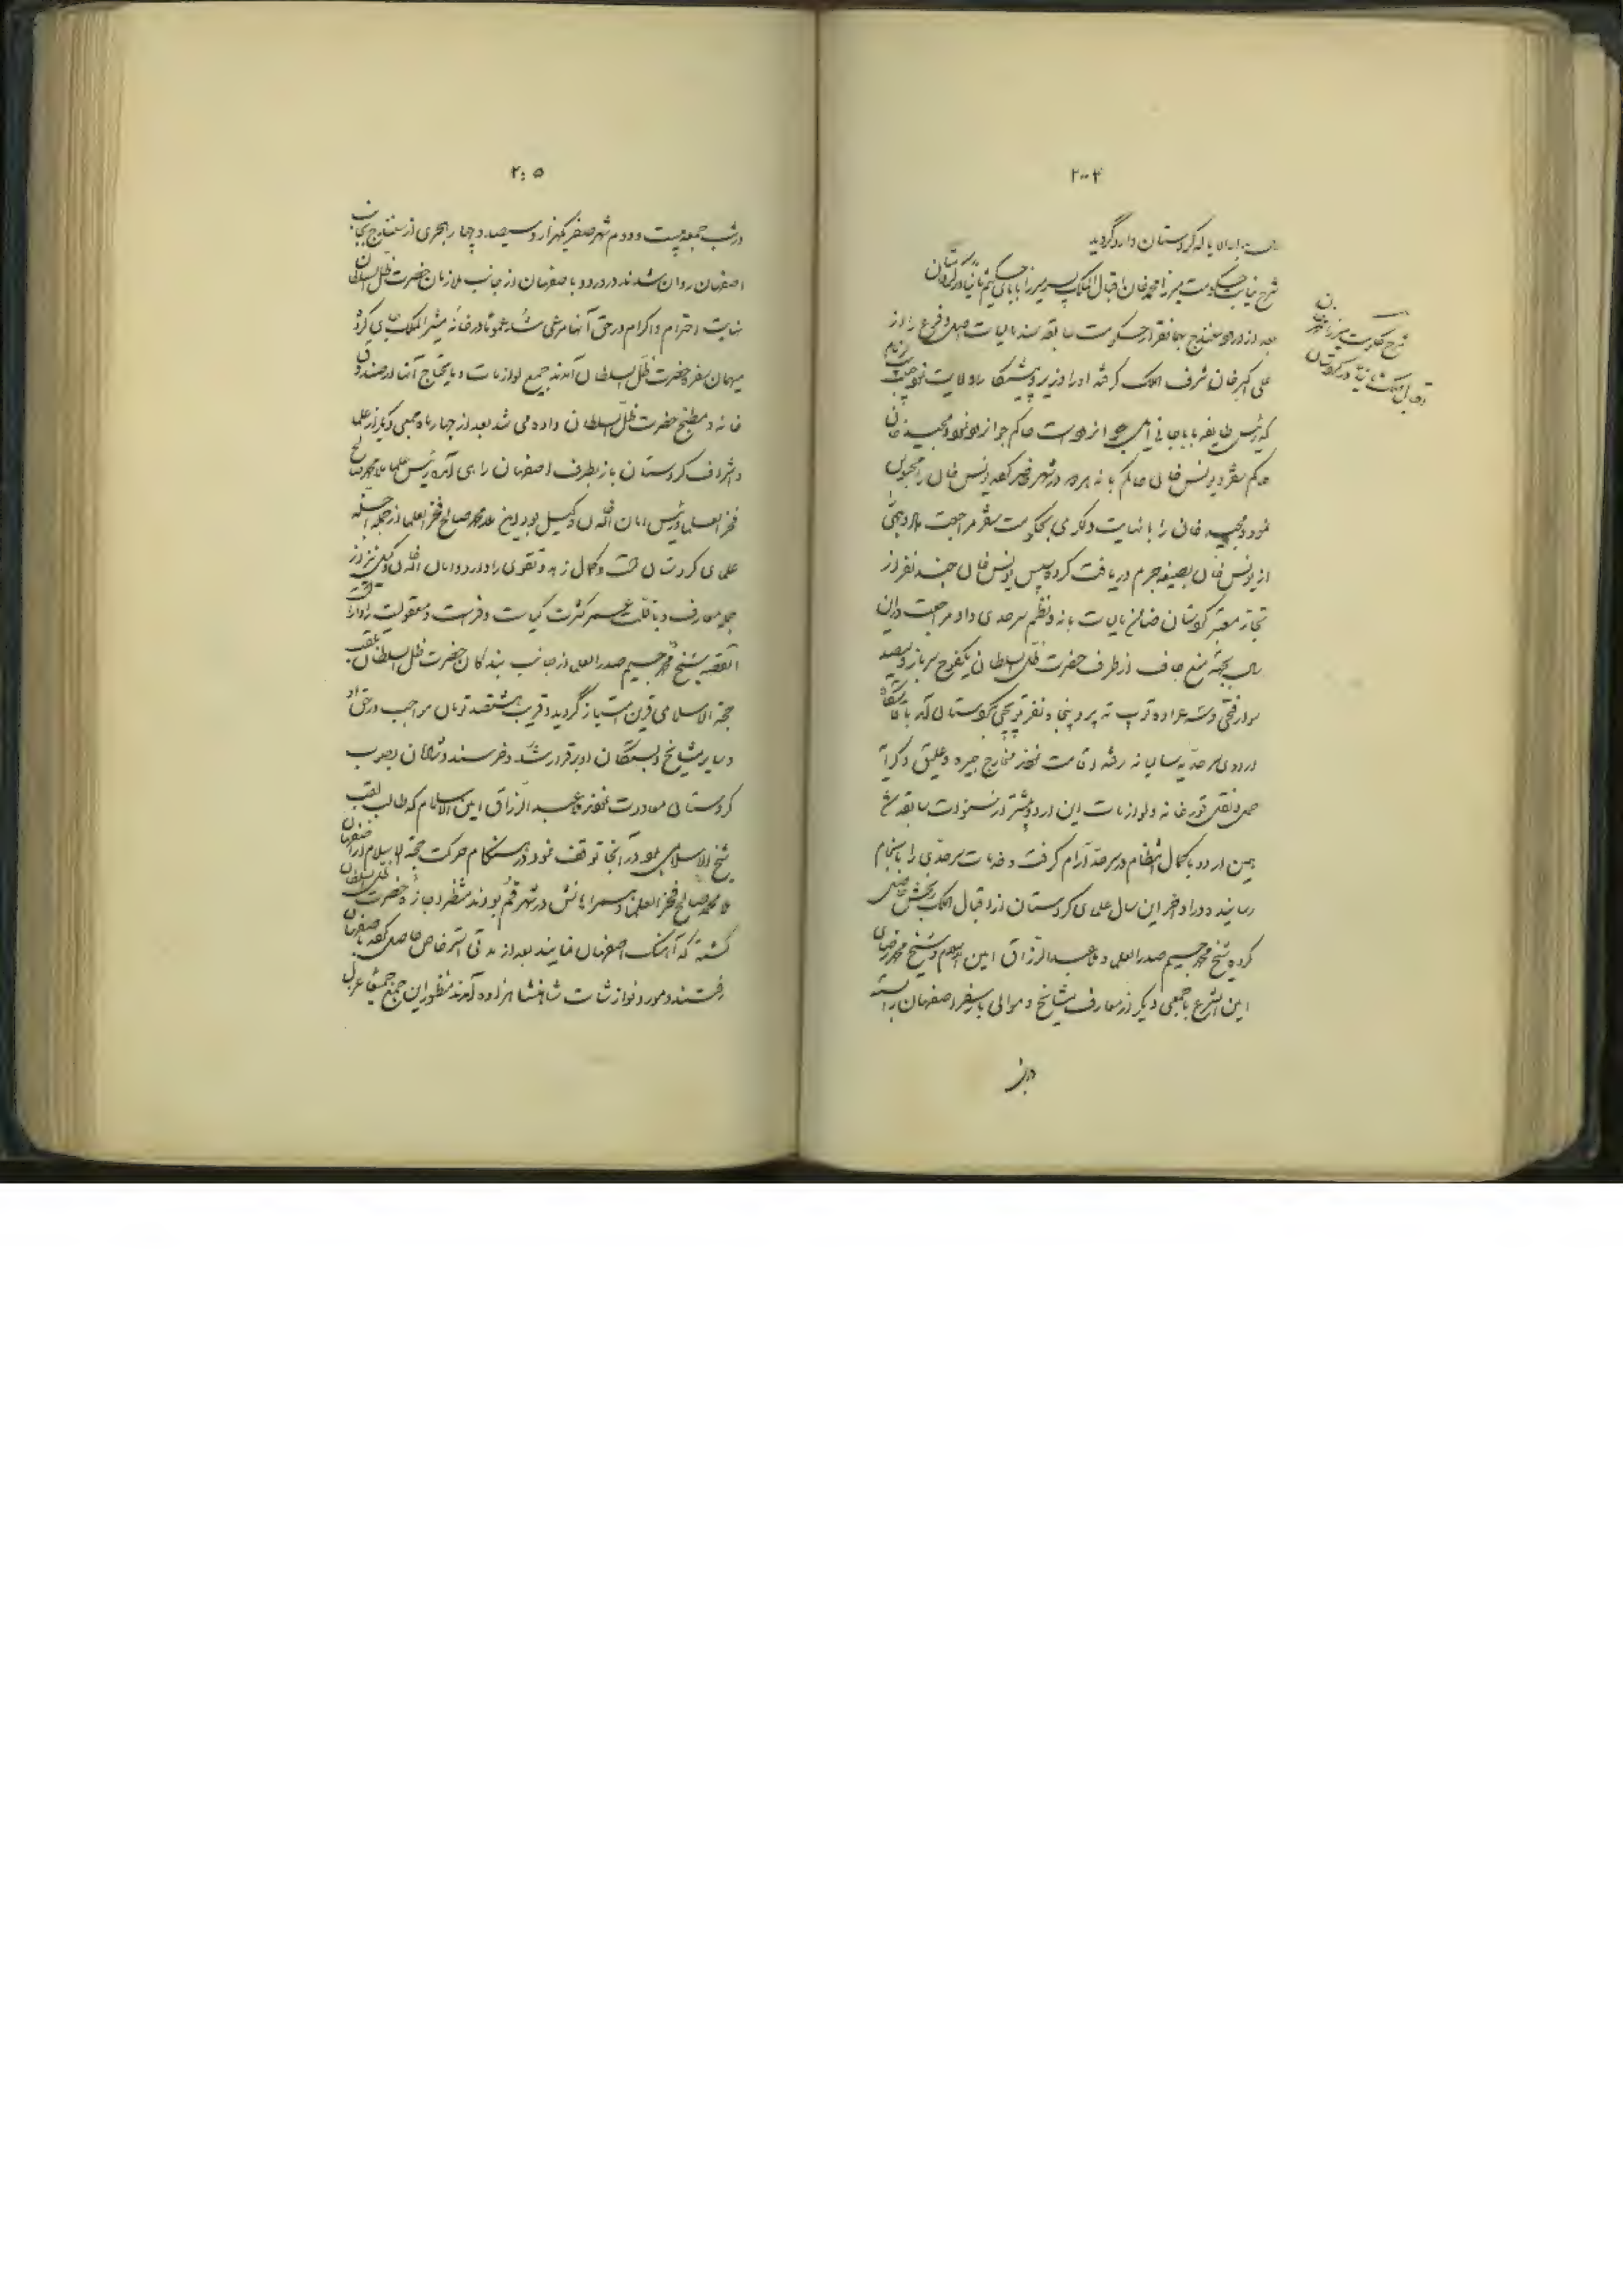 ۲۰۴
کردستان وارد گردید
شرح نیابت حکومت میرزا محمد خان اقبال الملک پسر میرزا بابای حکیم ثانیا در کردستان
بعد از ورود سنندج بهمانقرار حکومت سابقه سند مالیات اصل و فرع را از
علی اکبر خان شرف الملک گرفته او را وزیر و پیشکار ولایت نمود
که رئیس طایفه باباجانی حاکم جوانرود نمود و مجید خان
حاکم سقز و یونس خان حاکم بانه هر دو در شهر یونس خان را محبوس
نمود و مجید خان را با نهایت دلگرمی بحکومت سقز مراجعت داد
از یونس خان بصیغه جرم دریافت کرده سپس یونس خان چند نفر از
تجار معتبر کردستان ضامن مالیات بانه و نظم سرحدی داد مراجعت در این
سال بجهة منع جاف از طرف حضرت ظل السلطان یکفوج سرباز و سیصد
سوار و سه عراده توپ ته پر و پنجاه نفر توپچی بکردستان آمد
اردوی سرحدیه سالیانه رفته اقامت مخارج جیره و علیق و کرایه
حمل و نقل قورخانه و لوازمات این اردو بیشتر از سنوات سابقه شد
همین اردو بکمال انتظام در سرحد آرام گرفت و خدمات سرحدی را بانجام
رسانیده در اواخر این سال علمای کردستان از اقبال الملک رنجش حاصل
کرده شیخ محمد جسیم صدر العلما و ملا عبد الرزاق امین الاسلام و شیخ محمد رضای
امین الشرع با جمعی دیگر از معارف مشایخ و موالی بار سفر اصفهان را بسته
در
شرح حکومت میرزا محمد خان
اقبال الملک ثانیا در کردستان
۲۰۵
در شب جمعه بیست و دوم شهر صفر یکهزار و سیصد و چهار هجری از سنندج بجانب
اصفهان روان شدند در ورود باصفهان از جانب ملازمان حضرت ظل السلطان
نهایت احترام و اکرام در حق آنها مرعی شد عموما در خانه مشیر الملک
میهمان سفره حضرت ظل السلطان آمدند جمیع لوازمات و مایحتاج آنها از صندوق
خانه و مطبخ حضرت ظل السلطان داده می شد بعد از چهار ماه جمعی دیگر از علما
و اشراف کردستان باز بطرف اصفهان راهی آمده رئیس علما ملا محمد صالح
فخر العلما و رئیس امان الله وکیل بود این ملا محمد صالح فخر العلما از جمله اجله
علمای کردستان است و کمال زهد و تقوی را دارد و امان الله وکیل نیز از
جمله معارف و با قلت عمر کثرت کیاست و فراست و معقولیت را دارد
القصه شیخ محمد جسیم صدر العلما از جانب بندگان حضرت ظل السلطان بلقب
حجة الاسلامی قرین امتیاز گردید و قریب هشتصد تومان مواجب در حق او
و سایر مشایخ و بستگان او برقرار شد و خرسند و شادمان بصوب
کردستان معاودت نمودند ملا عبد الرزاق امین الاسلام که طالب لقب
شیخ الاسلامی بود در آنجا توقف نمود در هنگام حرکت حجة الاسلام از اصفهان
ملا محمد صالح فخر العلما و همراهانش در شهر قم بودند منتظر اجازه حضرت ظل السلطان
گشته که آهنگ اصفهان نمایند بعد از مدتی استرخاص حاصل کرده باصفهان
رفتند و مورد نوازشات شاهنشاهزاده آمدند منظور این جمع جمیعا عزل